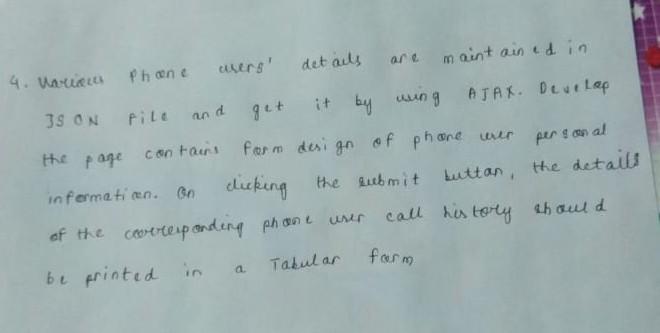 4. Various Phone users' details are maintained in
JSON File and get it by using AJAX. Develop
the page contains form design of phone user personal
information. On clicking the submit button, the details
of the corresponding phone user call history should
be printed in a Tabular form